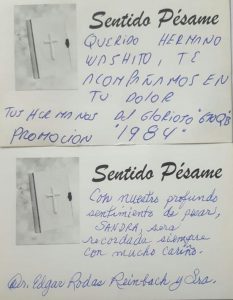 Sentido Pésame
QUERIDO HERMANO
WASHITO, TE
ACOMPAÑAMOS EN
TU DOLOR
TUS HERMANOS DEL GLORIOSO
PROMOCION "1984"
Sentido Pésame
Con nuestro profundo
sentimiento de pesar,
SANDRA, sera
recordada siempre
con mucho cariño.
Dr. Edgar Rodas Reinbach y Sra.